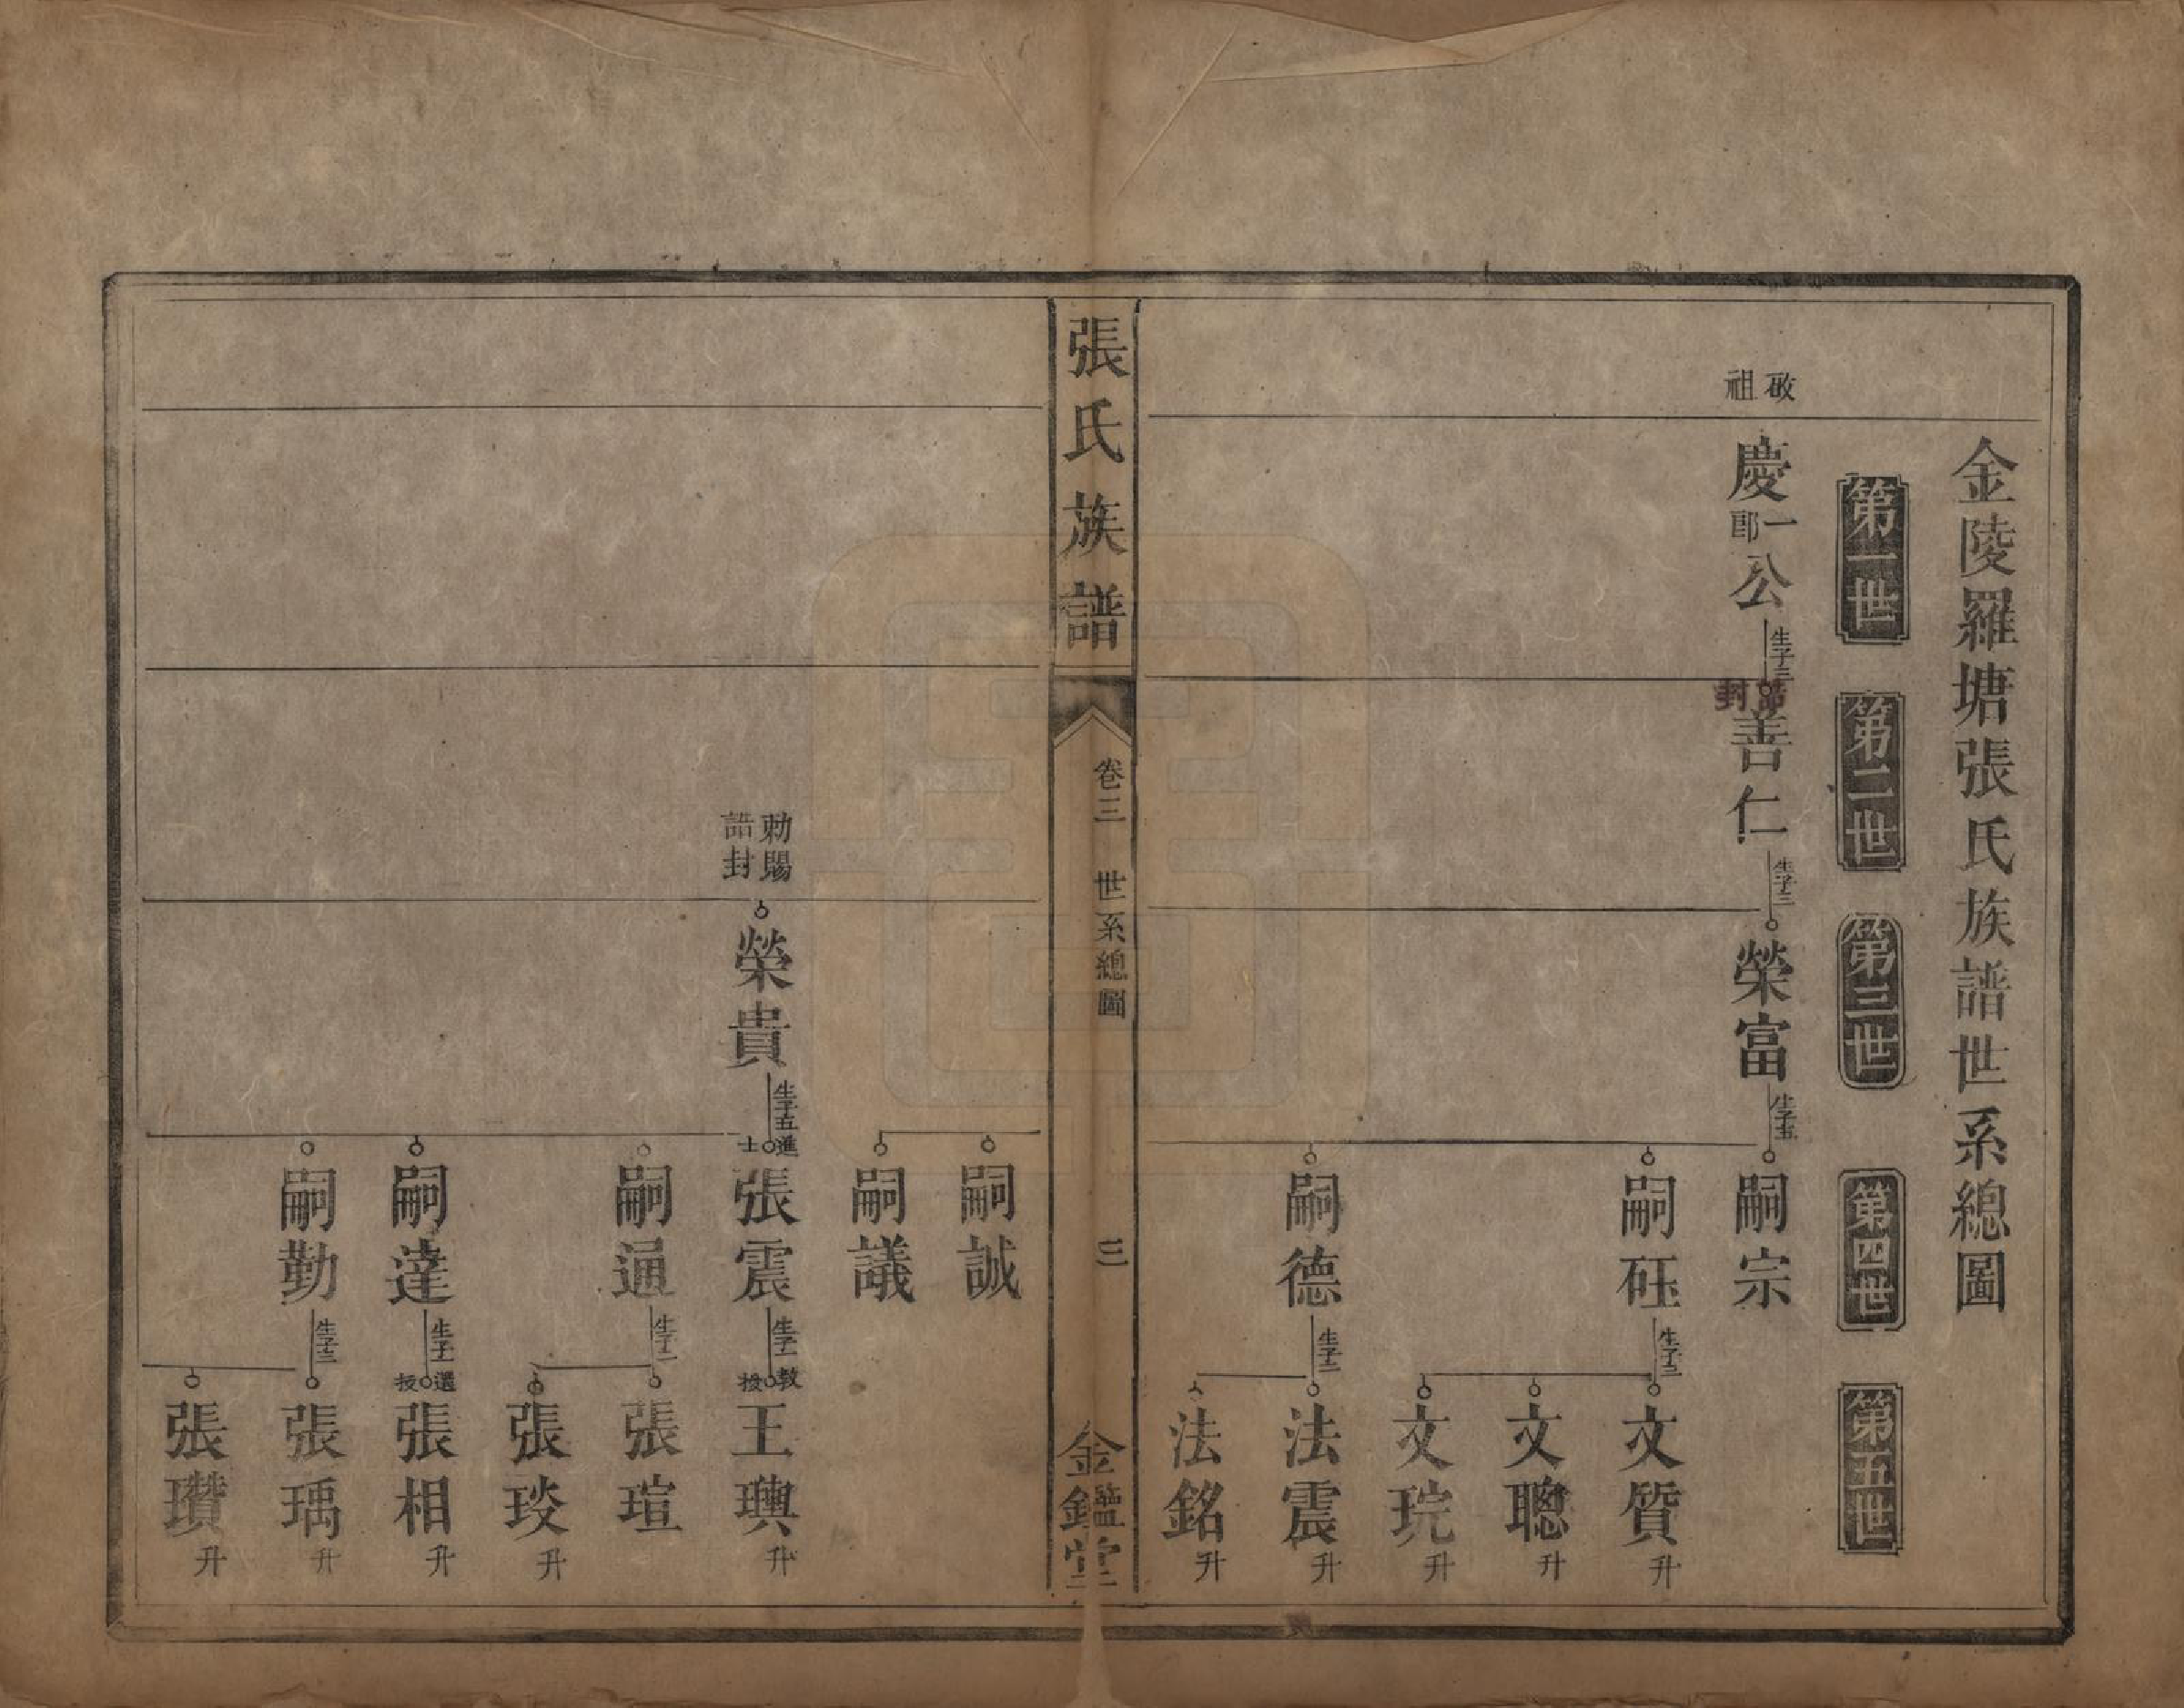 金陵羅塘張氏族譜世系總圖
第一世
第二世
第三世
第四世
第五世
祖
慶一郎公
生子三
封
善仁
生子二
榮富
生子五
嗣宗
嗣砡
生子三
文質
升
文聰
升
文琓
升
嗣德
生子二
法震
升
法銘
升
張氏族譜
卷三
世系總圖
三
金鑑堂
嗣誠
嗣議
勅賜
誥封
榮貴
生子五
進士
張震
生子一
教授
王璵
升
嗣通
生子二
張瑄
張琰
升
嗣達
生子一
張相
升
嗣勤
生子三
張瑀
升
張瓚
升